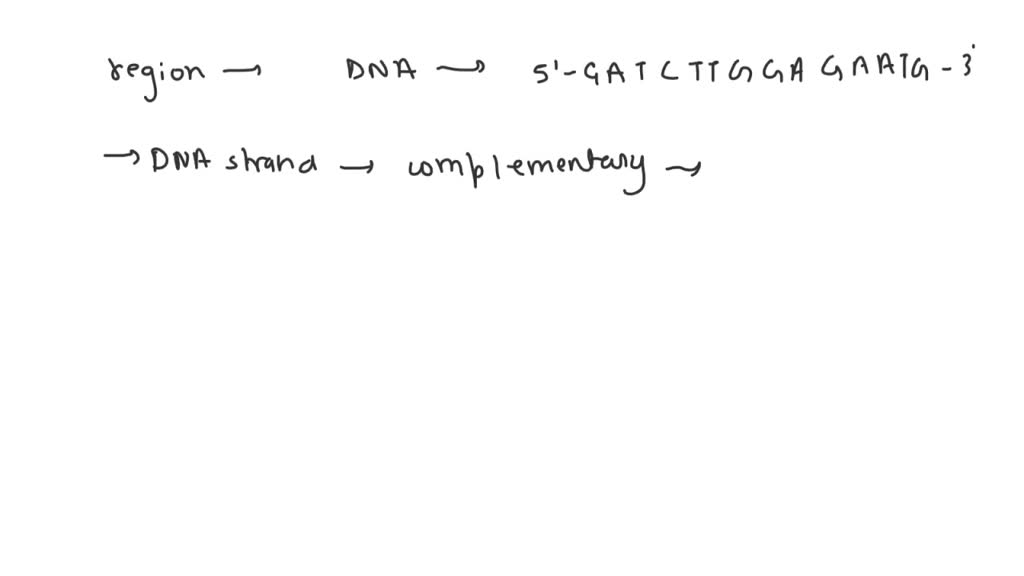 region → DNA → 5'-GATCTTGGAGAATG-3'
→ DNA strand → complementary →